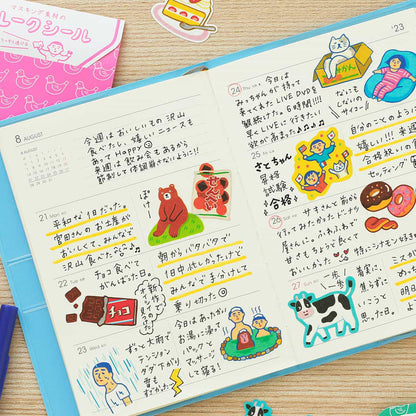 マスキング素材の
ルークシール
8 AUGUST
今週はおいしいもの沢山
食べたし、嬉しいニュースも
あってHappy
来週は飲み会もあるから
節制して体調崩さないように!!
21 Mon
平和な1日だった。
宮田さんのお土産が
おいしくて、みんなで
沢山食べた
22 Tue
チョコ食べて
がんばった日。
チョコ
ぼー
せんべい
朝からバタバタで
1日中忙しかったけど
みんなで手分けして
乗り切った
23 Wed
ずっと大雨で
テンション
ダダ下がり
雷も
すごかった
今日はあたたかい
お湯に浸って
パックと
マッサージ
して寝る!
'23
24 Thu
今日は
みっちゃんが持って
来てくれたLIVE DVDを
観続けた。6時間!!!
早くLIVEに行きたい
欲が高まった
みかん
なにも
しない
サイコー
25
さとちゃん
資格
試験
合格
自分のことのよう
嬉しい!!!
合格祝いの
セッティング
26 Sat
サキさんと前から
行ってみたかったドーナツ
屋さんに。ふわふわで
甘さもちょうど良くて
おいしかった。
特にシナモン
27 Sun
一歩
一歩
着実に。